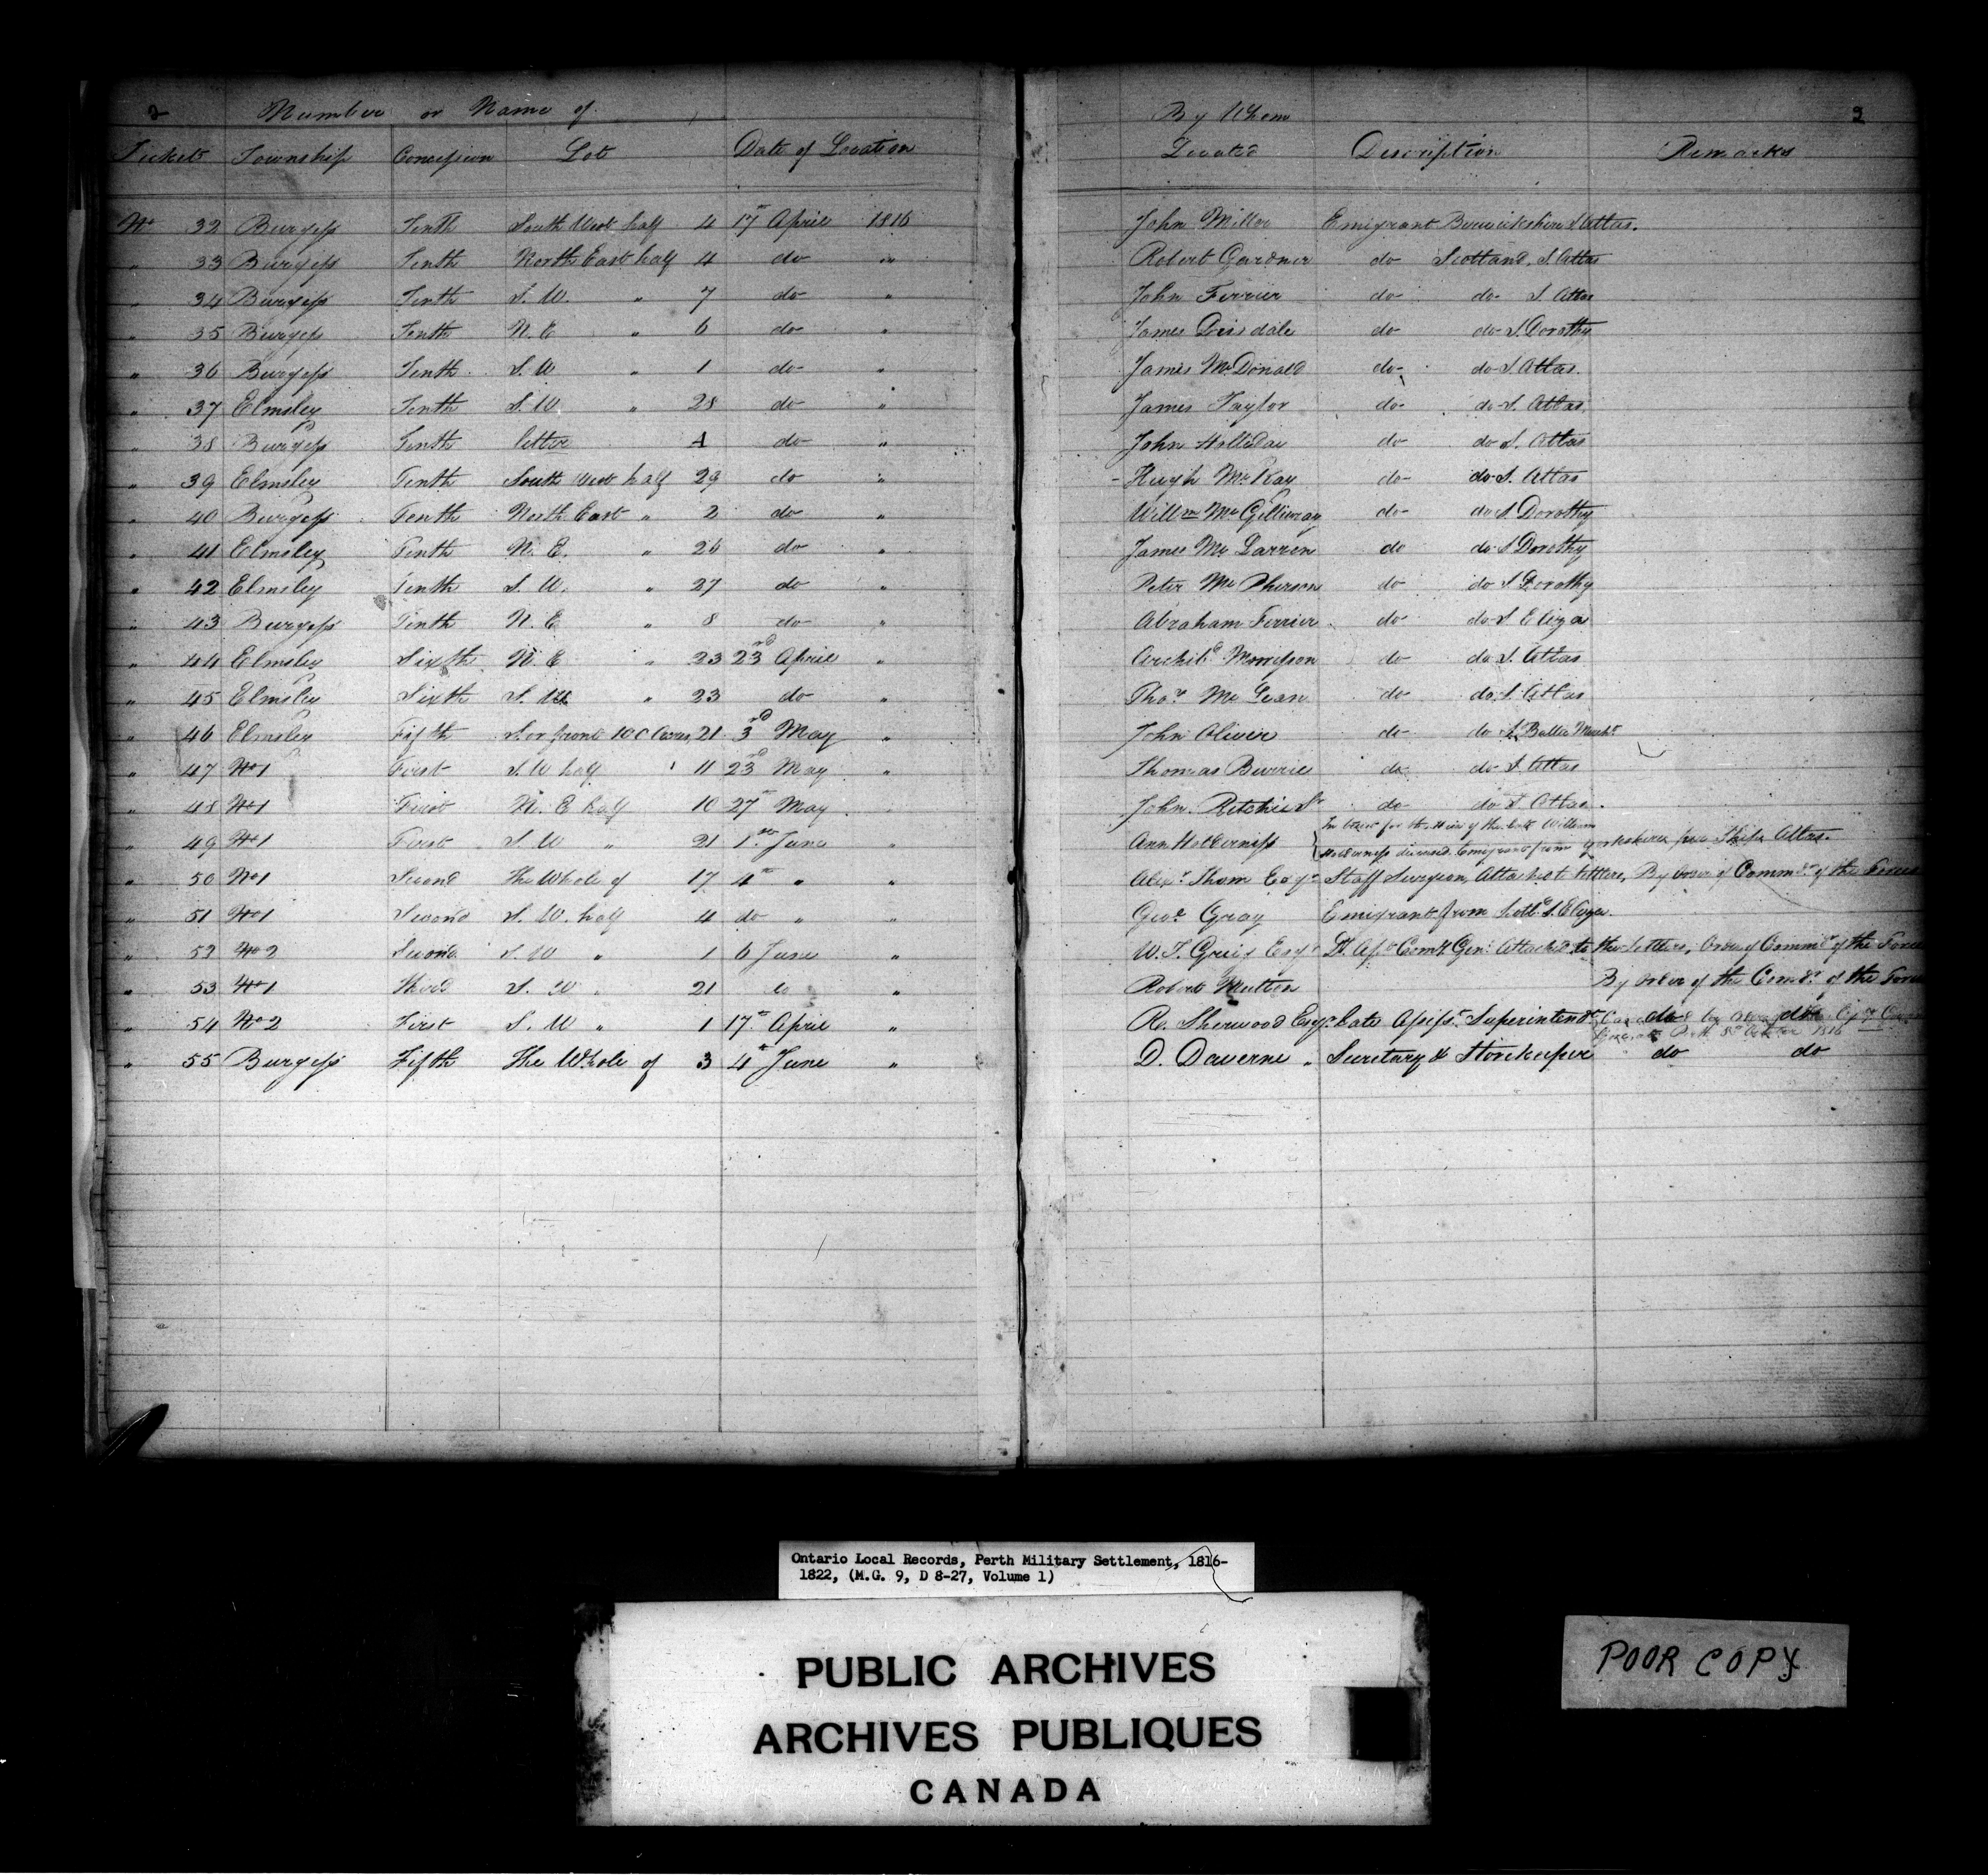 2 Number or Name of By Whom 2
Tickets Township Concession Lot Date of Location Located Description Remarks
No 32 Burgess Tenth South West half 4 17th April 1816 John Miller Emigrant Berwickshire S. Atlas.
" 33 Burgess Tenth North East half 4 do " Robert Gardner do Scotland, S. Atlas
" 34 Burgess Tenth S. W. " 7 do " John Ferrier do do S. Atlas
" 35 Burgess Tenth N. E " 6 do " James Drisdale do do S. Dorothy
" 36 Burgess Tenth S. W " 1 do " James McDonald do do S. Atlas.
" 37 Elmsley Tenth S. W " 28 do " James Taylor do do S. Atlas
" 38 Burgess Tenth letter A do " John Holliday do do S. Atlas
" 39 Elmsley Tenth South West half 29 do " Hugh McKay do do S. Atlas
" 40 Burgess Tenth North East " 2 do " Willm McGillivray do do S. Dorothy
" 41 Elmsley Tenth N. E. " 26 do " James McLarren do do S Dorothy
" 42 Elmsley Tenth S. W. " 27 do " Peter McPherson do do S Dorothy
" 43 Burgess Tenth N. E " 8 do " Abraham Ferrier do do S Eliza
" 44 Elmsley Sixth N. E " 23 23rd April " Archibd Morrison do do S. Atlas
" 45 Elmsley Sixth S. W " 23 do " Thos McLean do do S. Atlas
" 46 Elmsley Fifth S. or front 100 Acres 21 3rd May " John Oliver do do S. Baltic Mercht
" 47 No 1 First S. W half 11 23rd May " Thomas Barrie do do S. Atlas
" 48 No 1 First N. E half 10 27th May John Ritchie Sr do do S. Atlas.
" 49 No 1 First S. W " 21 1st June " Ann Holderness In trust for the Heir of the late William
Holderness deceased Emigrant from Yorkshire per Ship Atlas.
" 50 No 1 Second The Whole of 17 4th " " Alexr Thom Esqr Staff Surgeon, Attached to Settlers, By order of Commdr of the Forces
" 51 No 1 Second S. W. half 4 do " " Geoe Gray Emigrant from Scotld S. Eliza.
" 52 No 2 Second S. W " 1 6 June " W. T. Greig Esqr Dt Ast Comy Genl Attached to the Settlers, Order of Commdr of the Forces
" 53 No 1 Third S. W " 21 do " Robert By order of the Comdr of the Forces
" 54 No 2 First S. W " 1 17th April " R. Sherwood Esqr late Assistt Superintendt do do
" 55 Burgess Fifth The Whole of 3 4th June " D. Daverne " Secretary & Storekeeper do do
Ontario Local Records, Perth Military Settlement, 1816-
1822, (M.G. 9, D 8-27, Volume 1)
PUBLIC ARCHIVES
ARCHIVES PUBLIQUES
CANADA
POOR COPY